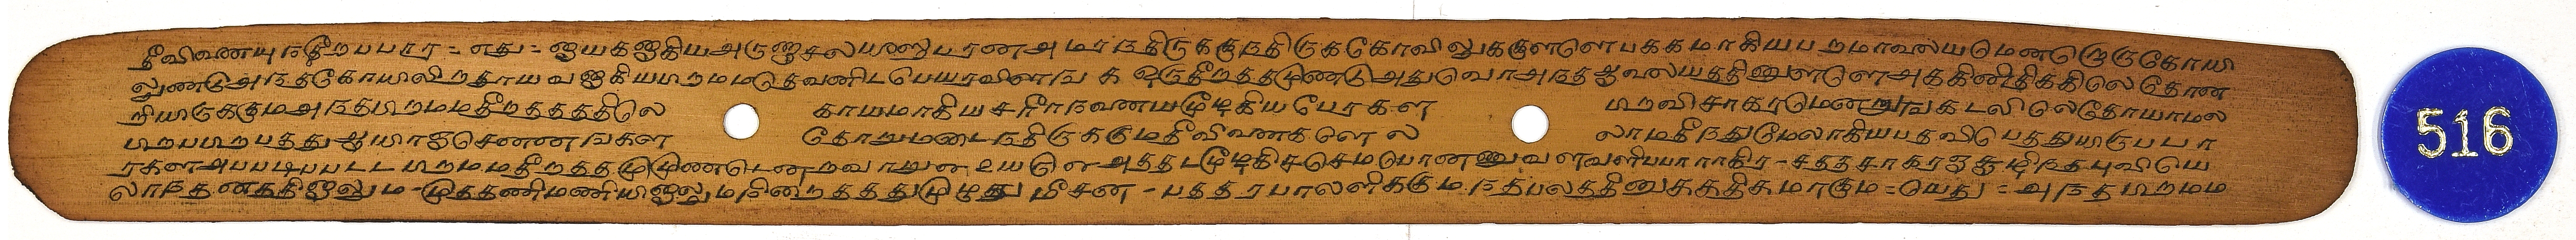 தீவினையுந்தீறபபார = எது = ஐயகஐகியஅருணாசலயுஙபரனஅ மரநதிருககுநதிருககோவிலுககுளளெபககமாகியபறமாலையமெனறெருகோயி
லுணடுஅநதகோயிலிறதாயவஐகியபிறமமதெவனிடபெயரவிளங க ஒருதீறததமுணடுஅதுவொஅநதஆலையததினுளளெஅககினிதிககிலெதோன
றியிருககுமஅநதபிறமமதீறததததிலெ காயமாகியசரீரஙளையமூழகியபேரகள பிறவிசாகரமெனறுஙகடலிலெதோயாமல
பிறபபிறபததுஆயாசசெனனஙகள தோறுமடைநதிருககுமதீவினைகளெ ல லாமதீநதுமேலாகியபதவிபெததுயிருபபா
ரகளஅபபடிபபடடபிறமமதீறததமுமுணடெனறவாறு உயளெஅததடமூழகிசசெமபொனணுவளவளிபபாராகிர - சததசாகரஞசூழநதபுவியெ
லாநதனததிஞலும - முததணிமணியிஞலுமநிறைதததுமுழுது மீசன - பததரபாலளிககுமநதபலததினுககதிகமாகும = யெது = அநதபிறமம
516